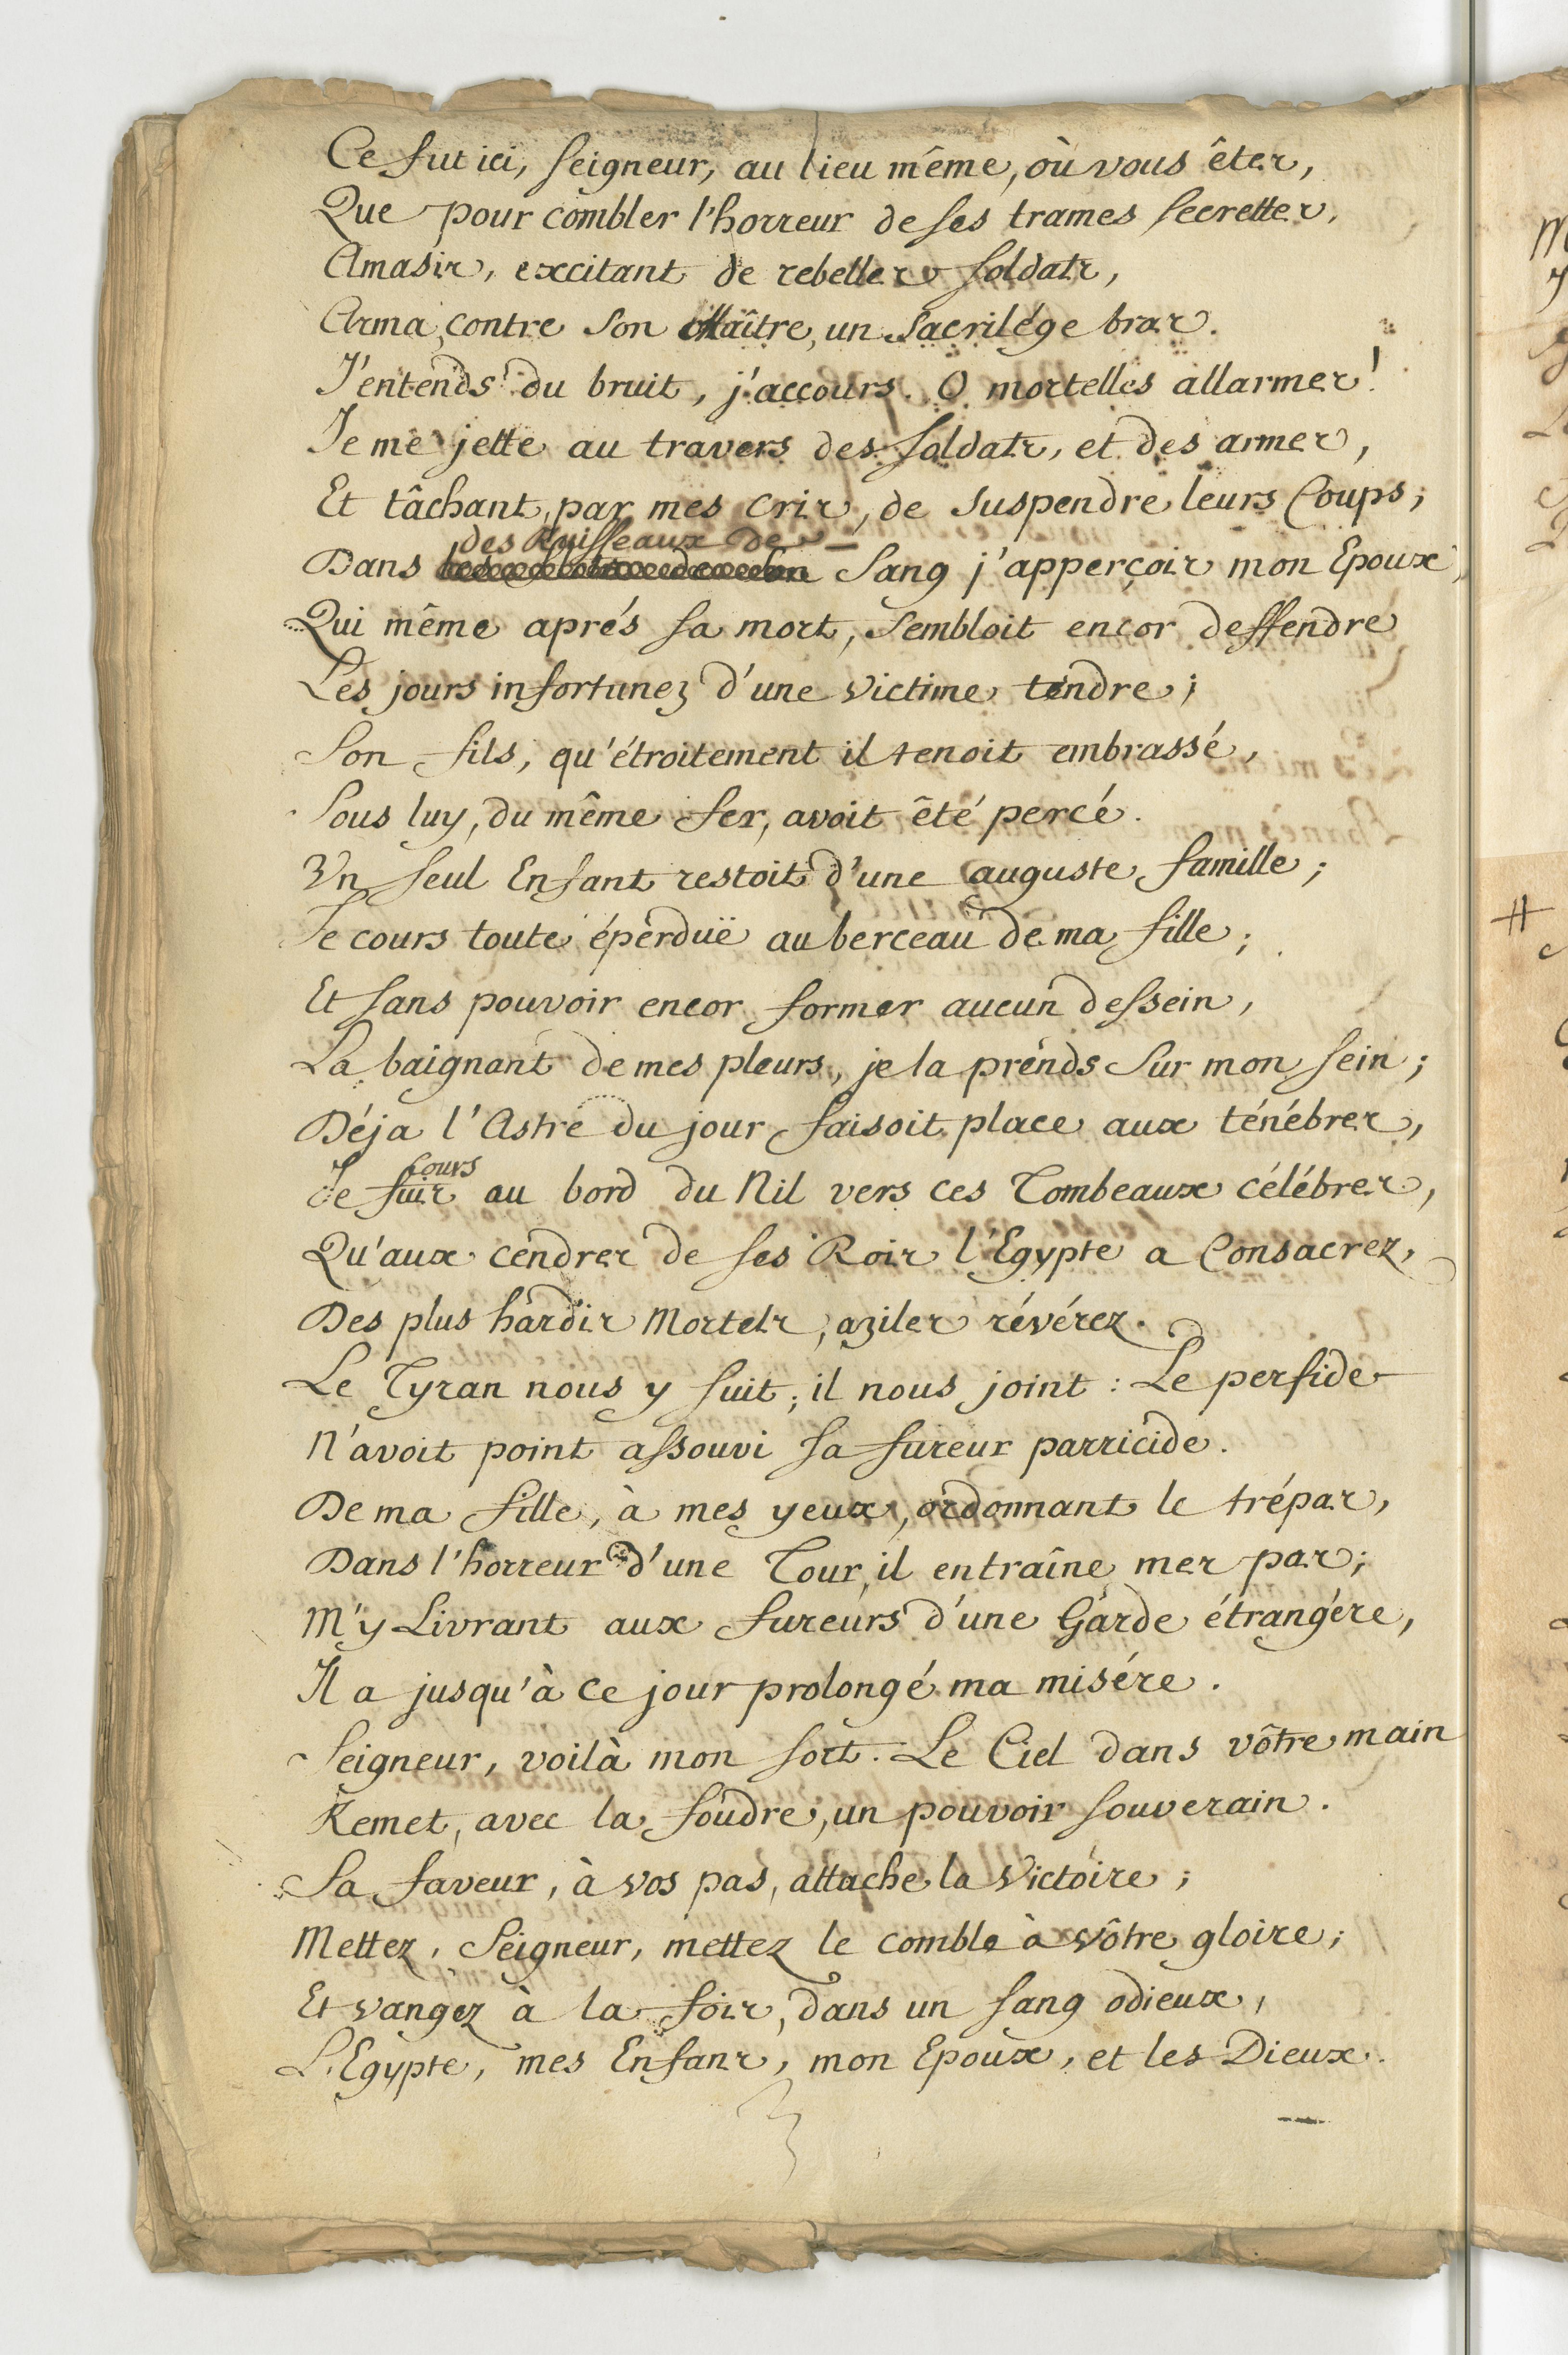 Ce fut ici, seigneur, au lieu même, où vous êtes,
Que pour combler l'horreur de ses trames secrettes,
Amasis, excitant de rebelles soldats,
Arma, contre son Maître, un sacrilége bras.
J'entends du bruit, j'accours. O mortelles allarmes!
Je me jette au travers des soldats, et des armes,
Et tâchant, par mes cris, de suspendre leurs Coups;
des Ruisseaux de
Dans sang j'apperçois mon Epoux,
Qui même aprés sa mort, sembloit encor deffendre
Les jours infortunez d'une victime tendre;
Son fils, qu'étroitement il tenoit embrassé,
Sous luy, du même fer, avoit êté percé.
Un seul Enfant restoit d'une auguste famille;
Je cours toute éperduë au berceau de ma fille;
Et sans pouvoir encor former aucun dessein,
La baignant de mes pleurs, je la prends sur mon sein;
Déja l'Astre du jour faisoit place aux ténébres,
Cours
Je fuis au bord du Nil vers ces Tombeaux célébres,
Qu'aux cendres de ses Rois l'Egypte a Consacrez,
Des plus hardis Mortels, aziles révérez.
Le Tyran nous y suit; il nous joint: Le perfide
N'avoit point assouvi sa fureur parricide.
De ma fille, à mes yeux, ordonnant le trépas,
Dans l'horreur d'une Tour, il entraîne mes pas;
M'y Livrant aux fureurs d'une Garde étrangére,
Il a jusqu'à ce jour prolongé ma misére.
Seigneur, voilà mon sort. Le Ciel dans vôtre main
Remet, avec la foudre, un pouvoir souverain.
Sa faveur, à vos pas, attache la Victoire;
Mettez, Seigneur, mettez le comble à vôtre gloire;
Et vangez à la fois, dans un sang odieux,
L'Egypte, mes Enfans, mon Epoux, et les Dieux.